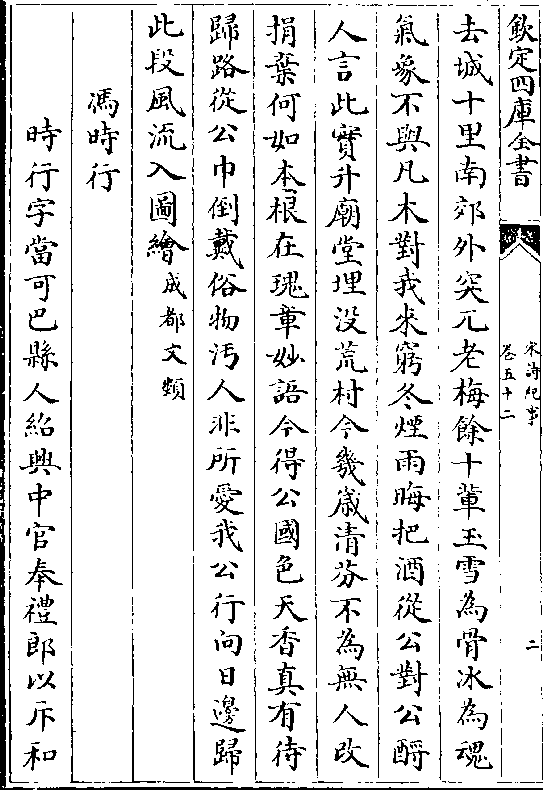 欽定四庫全書
宋詩紀事
卷五十二
二
去城十里南郊外突兀老梅餘十輩玉雪為骨冰為魂
氣象不與凡木對我来窮冬煙雨晦把酒從公對公酹
人言此實升廟堂埋没荒村今幾嵗清芬不為無人改
捐棄何如本根在瑰章妙語今得公國色天香真有待
歸路從公巾倒戴俗物汚人非所愛我公行向日邊歸
此段風流入圖繪成都文類
馮時行
時行字當可巴縣人紹興中官奉禮郎以斥和